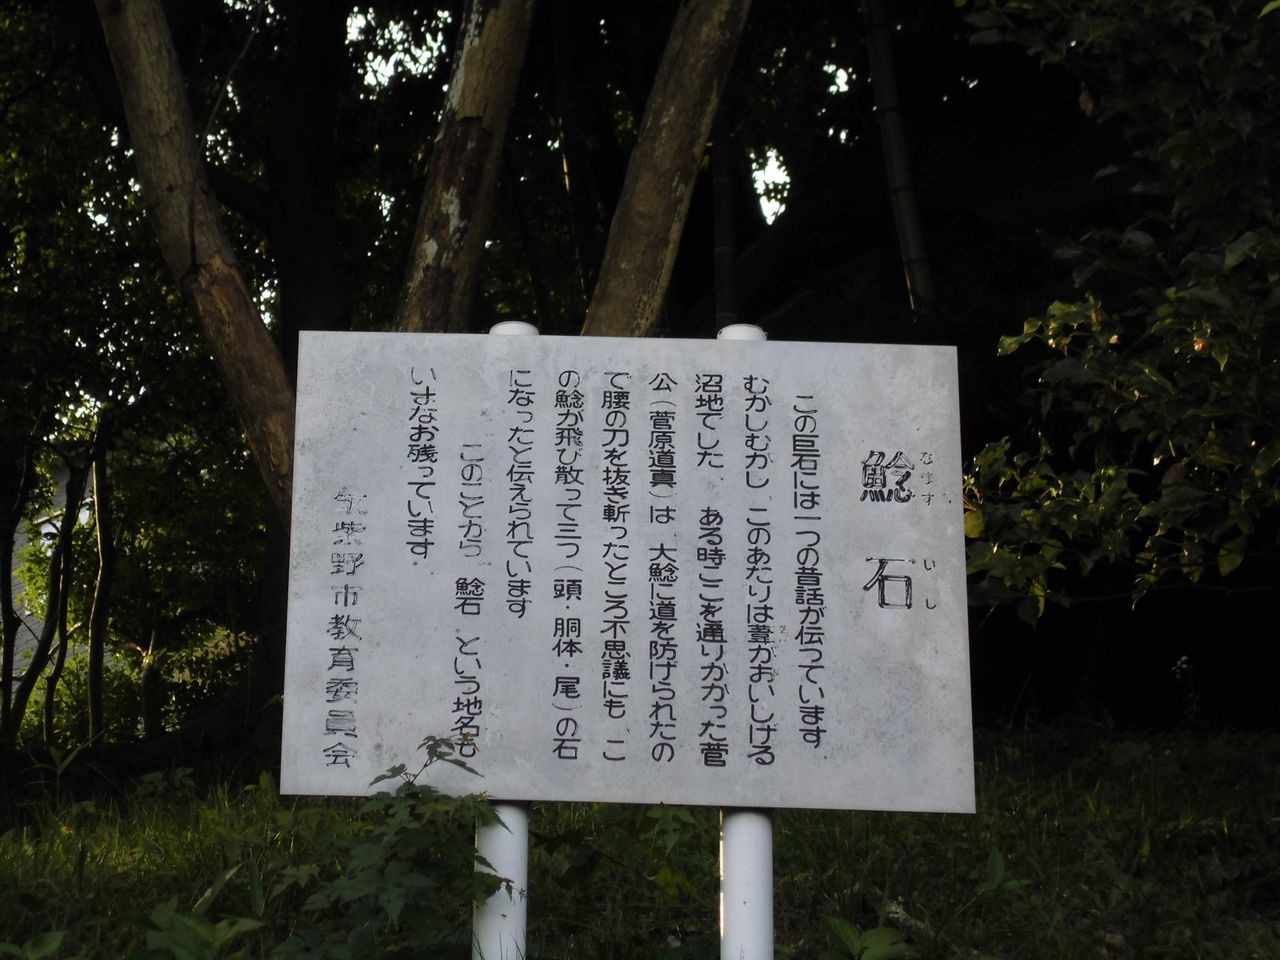 鯰石
なまず いし
この巨石には一つの昔話が伝っています.
むかしむかし このあたりは葦がおいしげる
沼地でした. ある時ここを通りかかった菅
公(菅原道真)は 大鯰に道を防げられたの
で腰の刀を抜き斬ったところ不思議にも こ
の鯰が飛び散って三つ(頭・胴体・尾)の石
になったと伝えられています
このことから 鯰石 という地名も
いまなお残っています.
筑紫野市教育委員会